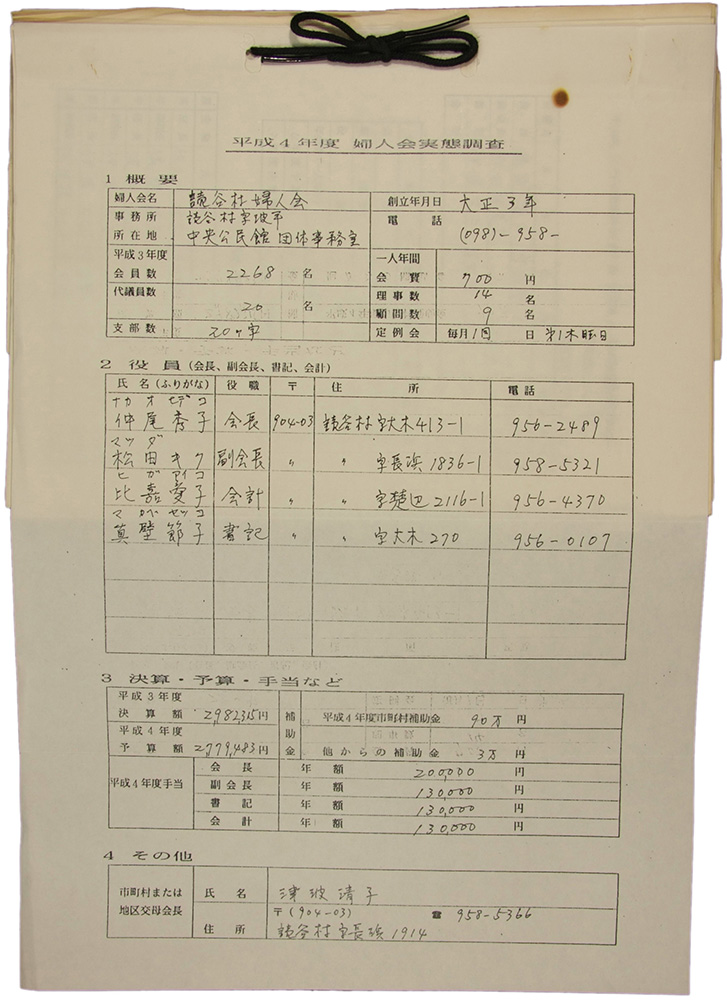 平成4年度 婦人会実態調査
1 概要
婦人会名 読谷村婦人会 創立年月日 大正3年
事務所 読谷村字波平 電話
所在地 中央公民館 団体事務室 (098)-958-
平成3年度 一人年間
会員数 2268名 会費 700円
代議員数 理事数 14名
20名 顧問数 9名
支部数 20ヶ字 定例会 毎月1回 日 第1木曜日
2 役員(会長、副会長、書記、会計)
氏名(ふりがな) 役職 〒 住所 電話
ナカオヒデコ
仲尾秀子 会長 904-03 読谷村字大木413-1 956-2489
マツダ
松田キク 副会長 〃 〃 字長浜1836-1 958-5321
ヒガアイコ
比嘉愛子 会計 〃 〃 字楚辺2116-1 956-4370
マカベセツコ
真壁節子 書記 〃 〃 字大木270 956-0107
3 決算・予算・手当など
平成3年度
決算額 2,982,315円 補 平成4年度市町村補助金 90万円
平成4年度 助
予算額 2,779,483円 金 他からの補助金 3万円
会長 年額 200,000円
平成4年度手当 副会長 年額 130,000円
書記 年額 130,000円
会計 年額 130,000円
4 その他
市町村または 氏名 津波清子
地区交母会長 〒(904-03) ☎ 958-5366
住所 読谷村字長浜1914